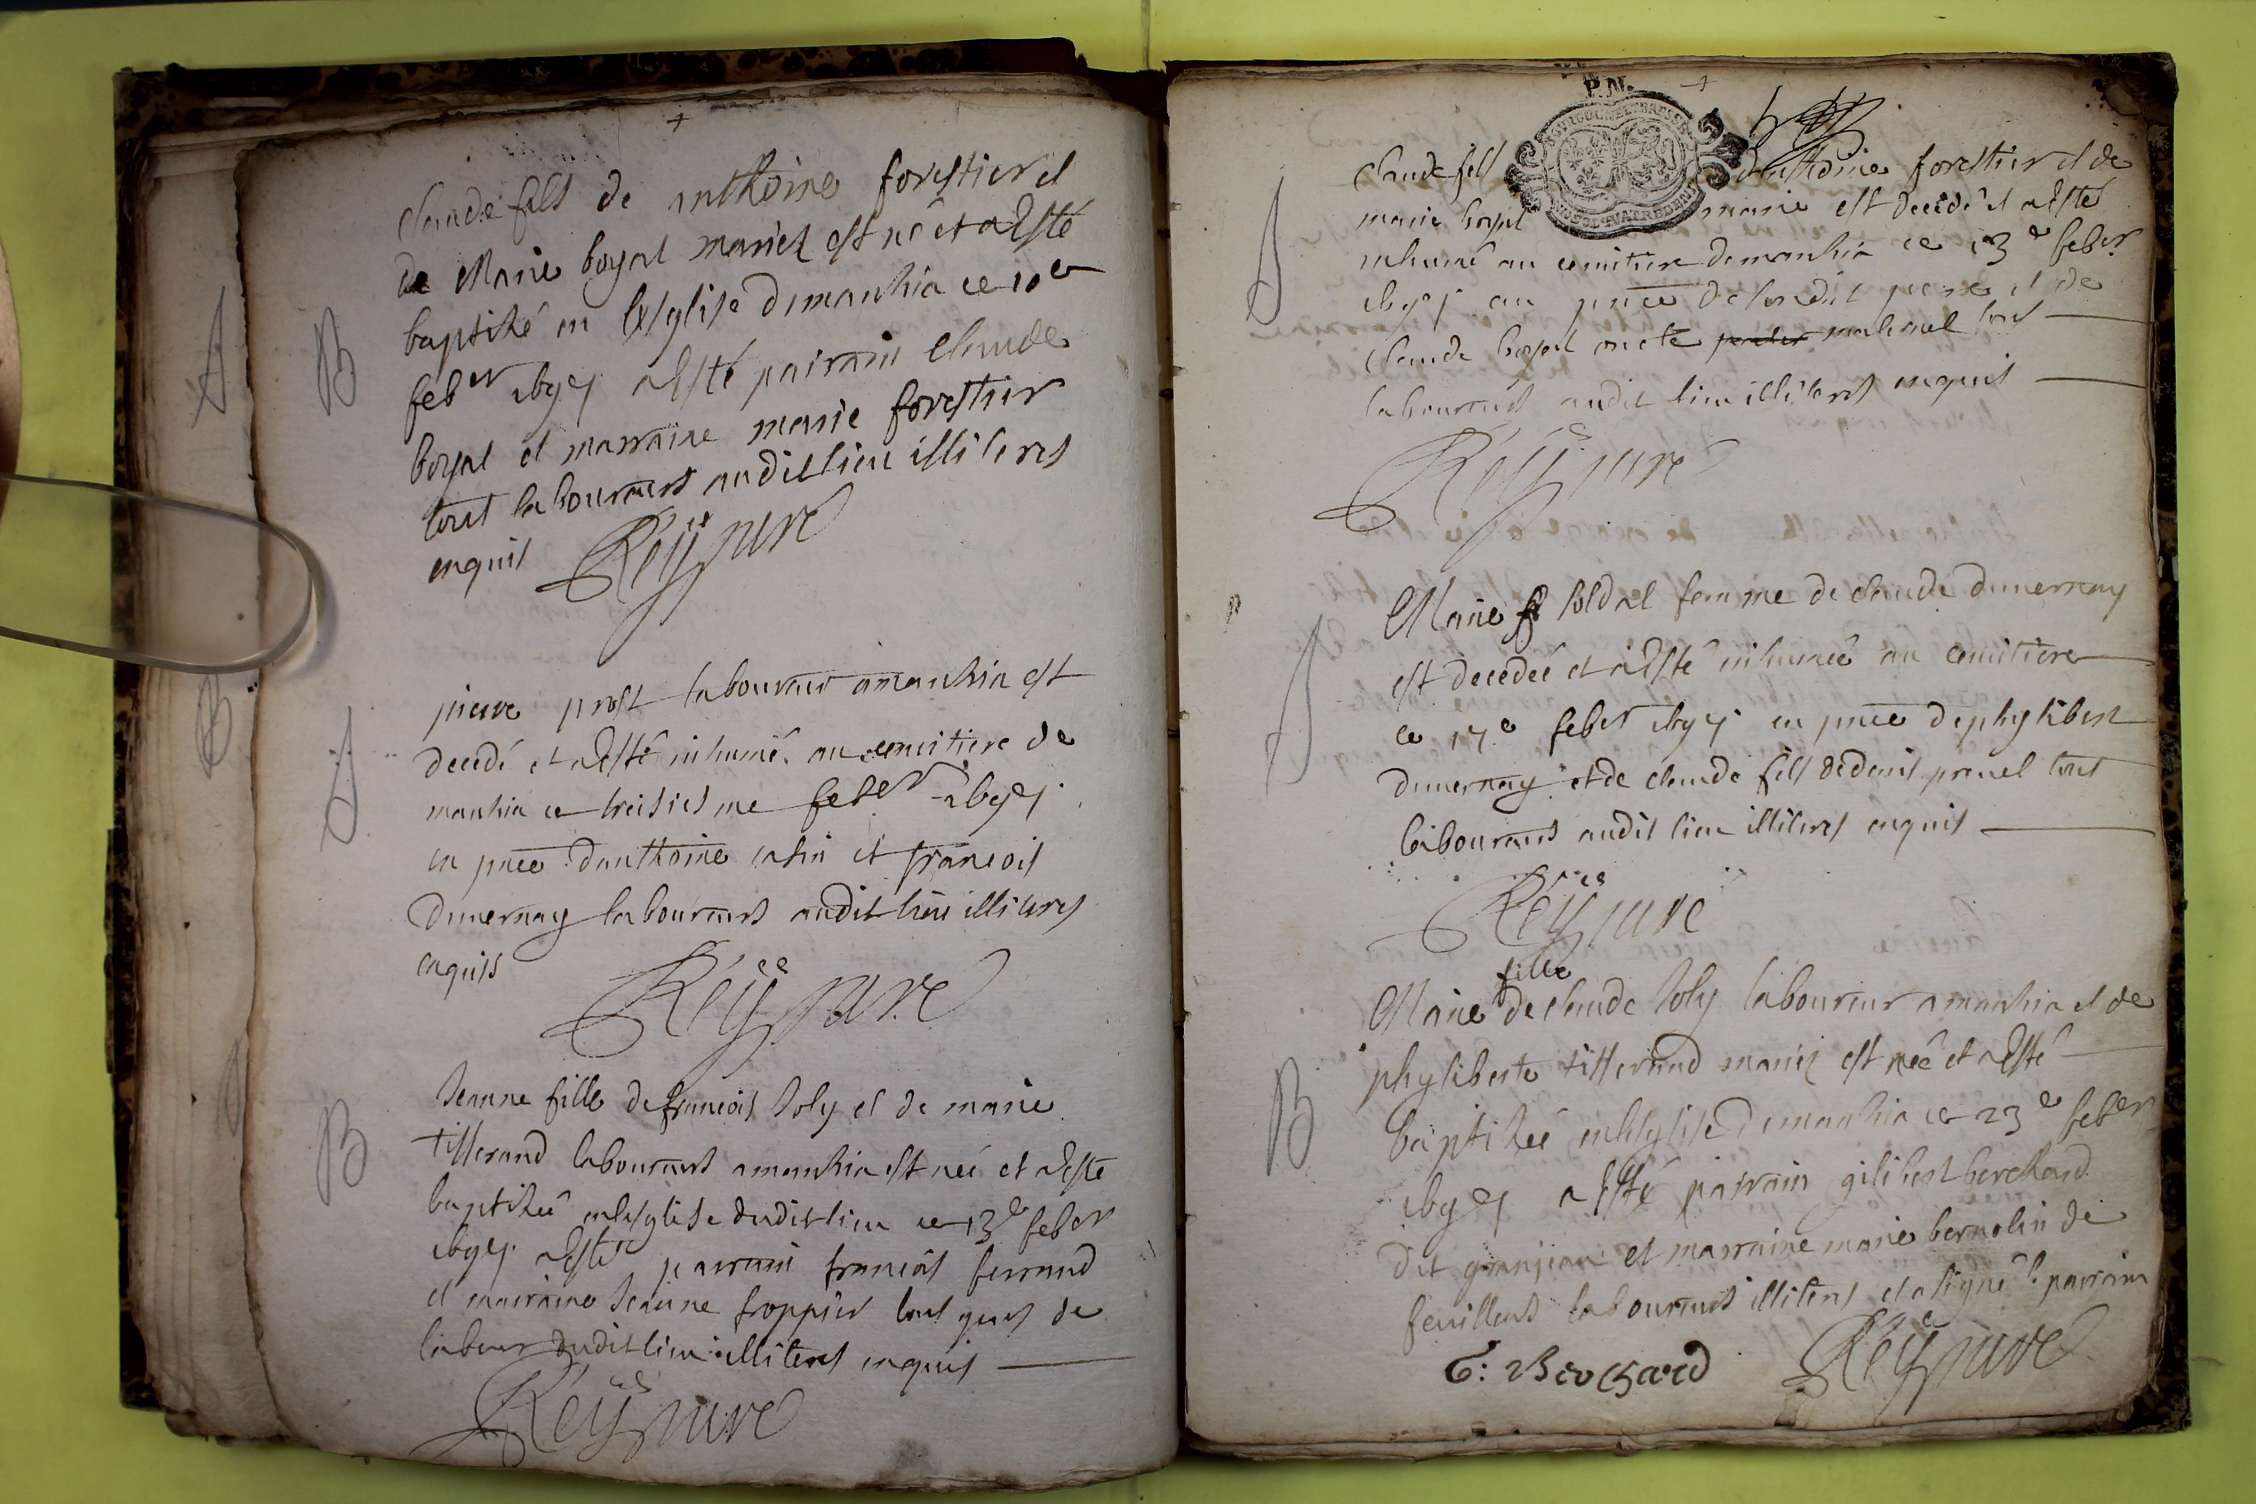 B
Claude fils de anthoine forestier et
de Marie boyat mariez est né et a Esté
baptisé en lesglise demanhia ce 10e
feber a Esté parrain Claude
boyat et marraine marie forestier
tous laboureurs audit lieu illiteres
enquis Reÿ cure
pierre prost laboureur amanhia est
decedé et a esté inhumé au cemitiere de
manhia ce treisiesme feber
en pnce danthoine et francois
Duuernay laboureurs audit lieu illiteres
enquis
Reÿ cure
B
Jeanne fille de francois Joly et de marie
tisserand laboureurs amanhia est née et a esté
baptisée enlesglise dudit lieu ce 13e feber
a esté parrain francois ferrand
et marraine Jeanne froppier tous gens de
labeur dudit lieu illiteres enquis
Reÿ cure
P.N.
Claude fils danthoine forestier et de
marie boyat marie est decedé et a Esté
inhumé au cemitiere demanhia ce 13e feber
en pnce de sondit pere et de
Claude boyat oncle maternel tous
laboureurs audit lieu illiteres enquis
Reÿ cure
Marie soldat femme de claude duuernay
est decedeé et a Esté inhumeé au cemitiere
ce 17e feber en pnce de phylibert
duuernay et de claude fils dedenis preuel tous
laboureurs audit lieu illiteres enquis
Reÿ cure
fille
Marie de claude Joly laboureur amanhia et de
B
phyliberte tisserand mariez est neé et a Esté
baptiseé enlesglise demanhia ce 23e feber
a Esté parrain gilibert berchard
dit granjean et marraine marie bernolin de
feuillens laboureurs illiteres et a signé le parrain
G: Berchard Reÿ cure